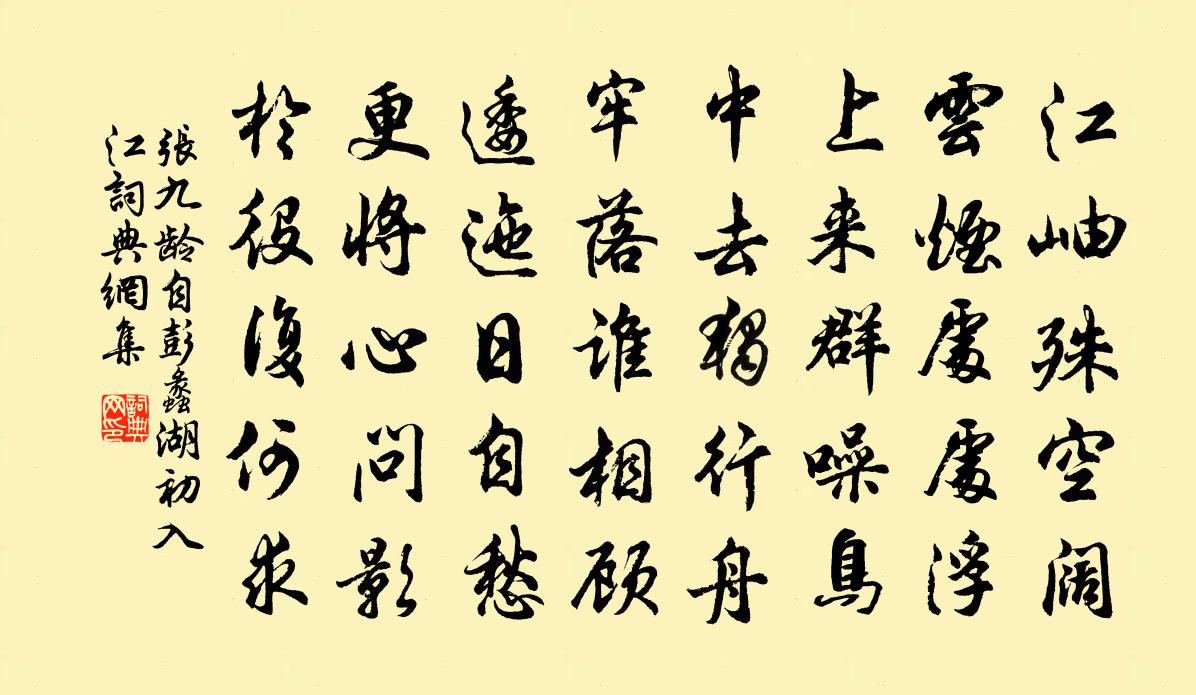 江岫殊空闊
雲煙處處浮
上来群噪鳥
中去獨行舟
牢落誰相顧
逶迤日自愁
更將心問影
於役復何求
張九龄自彭蠡湖初入
江詞典網集
詞典
网印